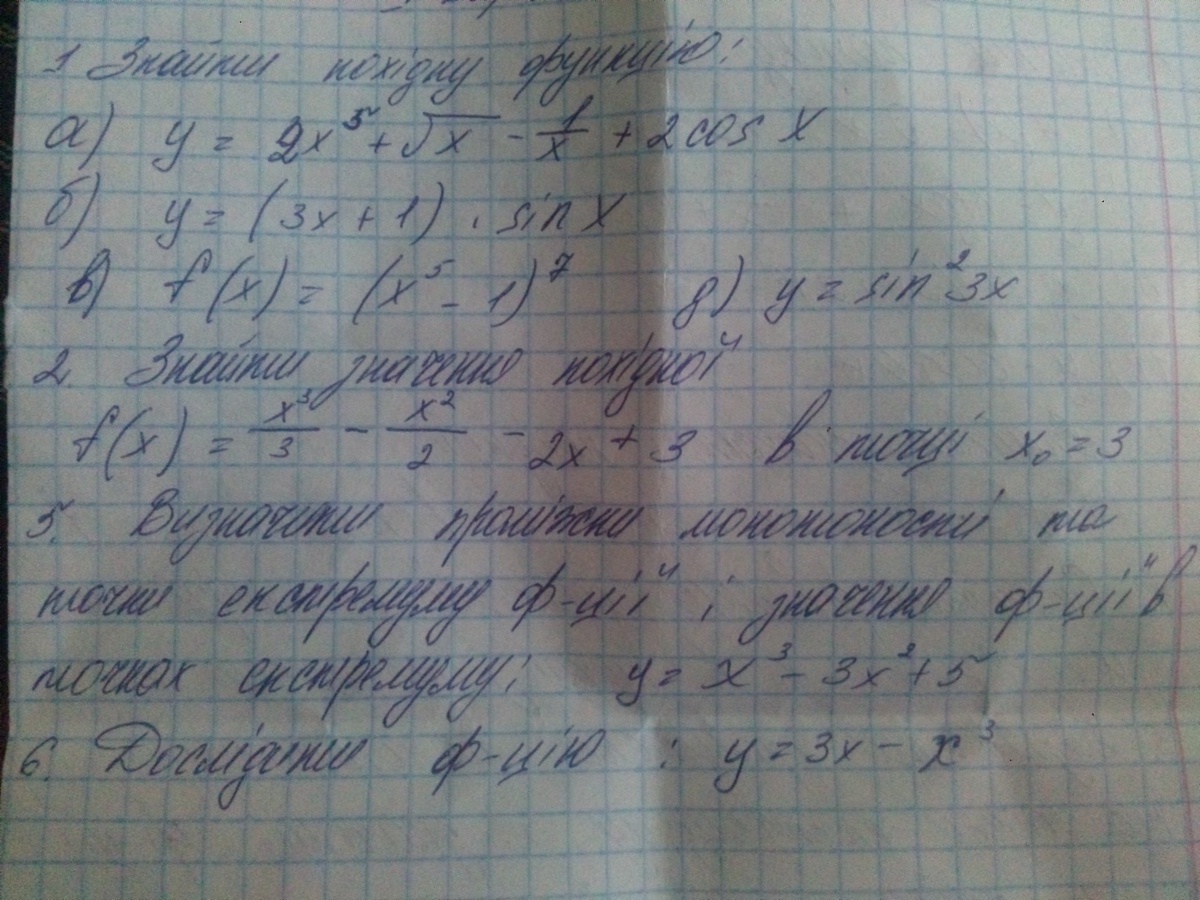 1 Знайти похідну функцію:
а) y = 2x⁵ + √x - 1/x + 2 cos x
б) y = (3x + 1) · sin x
в) f(x) = (x⁵ - 1)⁷ д) y = sin² 3x
2. Знайти значення похідної
f(x) = x³/3 - x²/2 - 2x + 3 в точці x₀ = 3
5. Визначити проміжки монотоності та
точки екстремуму ф-ції і значення ф-ції в
точках екстремуму: y = x³ - 3x² + 5
6. Дослідити ф-цію : y = 3x - x³